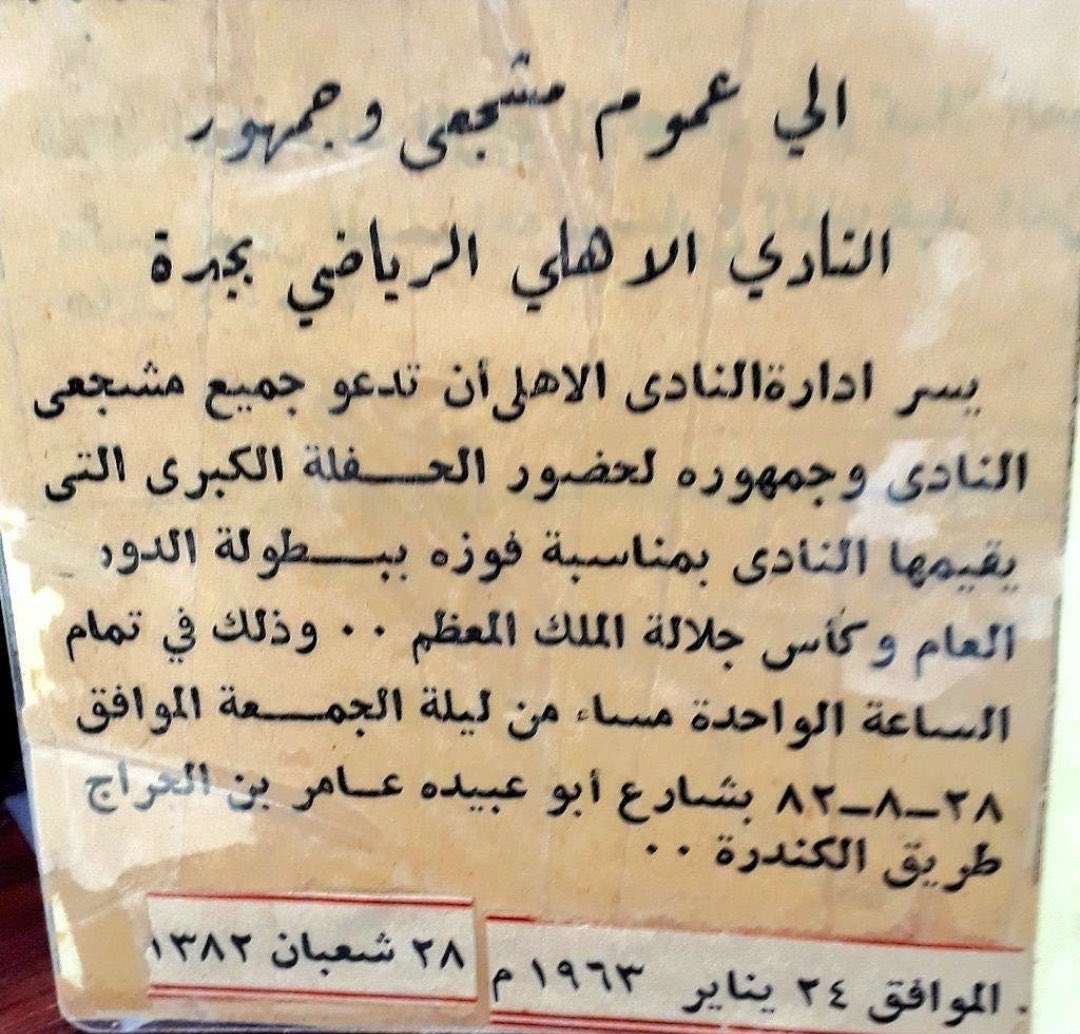 الي عموم مشجعى وجمهور
النادي الاهلي الرياضي بجدة
يسر ادارةالنادى الاهلى أن تدعو جميع مشجعى
النادى وجمهوره لحضور الحفلة الكبرى التى
يقيمها النادى بمناسبة فوزه ببطولة الدور
العام وكأس جلالة الملك المعظم ٠٠ وذلك في تمام
الساعة الواحدة مساء من ليلة الجمعة الموافق
٢٨-٨-٨٢ بشارع أبو عبيده عامر بن الحراج
طريق الكندرة ٠٠
٢٨ شعبان ١٣٨٢
الموافق ٢٤ يناير ١٩٦٣ م